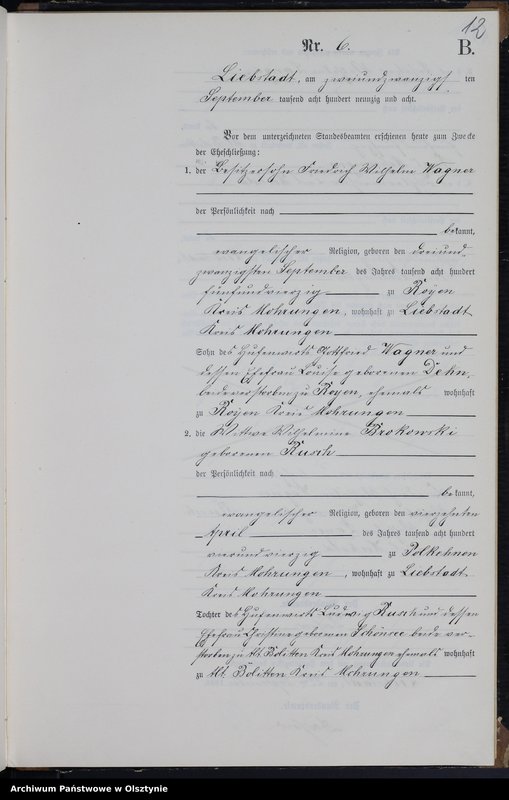 12
Nr. 6.
B.
Liebstadt, am zweiundzwanzigsten
September tausend acht hundert neunzig und acht.
Vor dem unterzeichneten Standesbeamten erschienen heute zum Zwecke
der Eheschließung:
1. der Besitzersohn Friedrich Wilhelm Wagner
der Persönlichkeit nach
bekannt,
evangelischer Religion, geboren den dreiund-
zwanzigsten September des Jahres tausend acht hundert
fünfundvierzig zu Royen
Kreis Mohrungen, wohnhaft zu Liebstadt
Kreis Mohrungen
Sohn des Hufenwirts Gottfried Wagner und
dessen Ehefrau Louise geborenen Dehn,
beide verstorben zu Royen, ehemals wohnhaft
zu Royen Kreis Mohrungen
2. die Wittwe Wilhelmine Brokowski
geborenen Rusch
der Persönlichkeit nach
bekannt,
evangelischer Religion, geboren den vierzehnten
April des Jahres tausend acht hundert
vierundvierzig zu Polkehnen
Kreis Mohrungen, wohnhaft zu Liebstadt
Kreis Mohrungen
Tochter des Hufenwirts Ludwig Rusch und dessen
Ehefrau Christine geborenen beide ver-
storben zu Alt Bolitten Kreis Mohrungen ehemals wohnhaft
zu Alt Bolitten Kreis Mohrungen
Archiwum Państwowe w Olsztynie